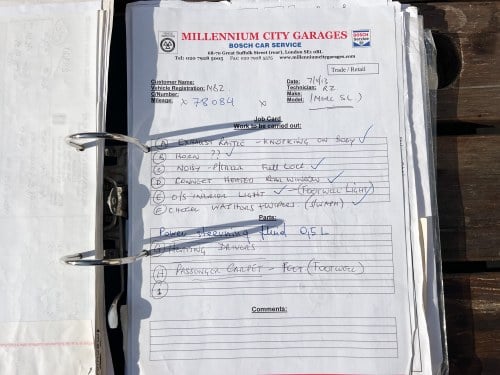 MILLENNIUM CITY GARAGES
BOSCH CAR SERVICE
68-70 Great Suffolk Street (rear), London SE1 0BL
Tel: 020 7928 5005 Fax: 020 7928 5275 www.millenniumcitygarages.com
BOSCH
Service
Trade / Retail
Customer Name:
Vehicle Registration: M82
C/Number:
Mileage: x 78084 x
Date: 7/4/13
Technician: RZ
Make:
Model: (Merc SL)
Job Card
Work to be carried out:
(A) EXHAUST RATTLE - KNOCKING ON BODY ✓
(B) HORN ?? ✓
(C) NOISY - P/STEER FULL LOCK ✓
(D) CONNECT HEATED REAR WINDOW ✓
(E) O/S INTERIOR LIGHT ✓ - (FOOTWELL LIGHT)
(F) CHECK WASHERS & WIPERS. ✓
Parts:
Power steering fluid 0,5 L
(H) PASSENGER CARPET - FEET (FOOTWELL)
Comments: